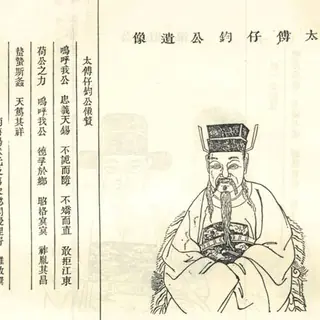 太傅仔鈞公遺像
太傅仔鈞公像贊
嗚呼我公 忠義天錫 不詭而隨 不矯而直 敢拒江東
荷公之力 嗚呼我公 德孚於鄉 昭格冥冥 祚胤其昌
蟄蟄斯螽 天篤其祥